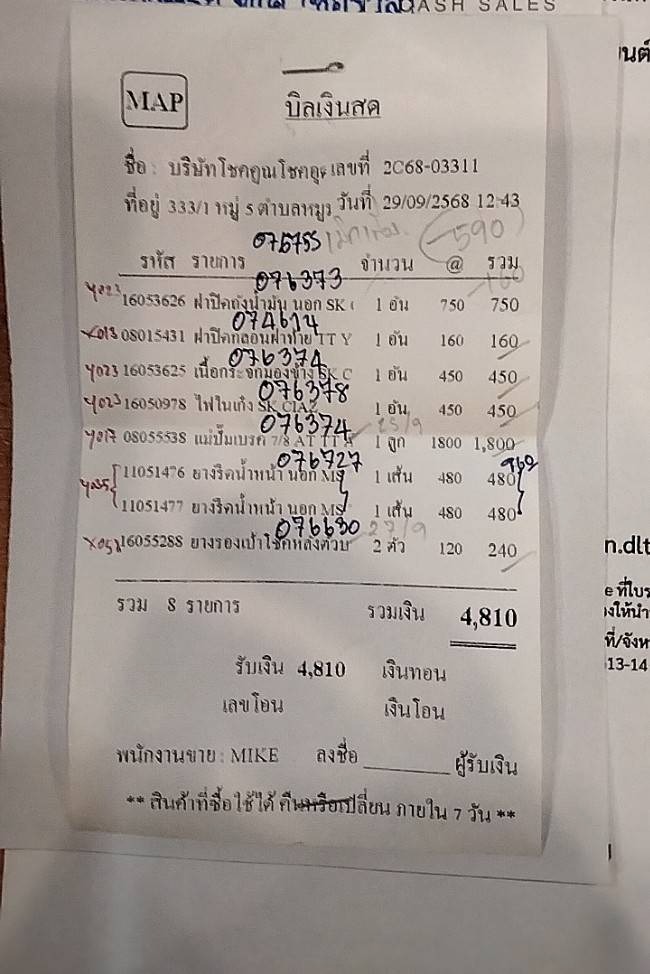 CASH SALES
MAP
บิลเงินสด
ชื่อ : บริษัทโชคคูณโชคอุ เลขที่ 2C68-03311
ที่อยู่ 333/1 หมู่ 5 ตำบลหมูม วันที่ 29/09/2568 12:43
075755 590
รหัส รายการ จำนวน @ รวม
076373
Y023 16053626 ฝาปิดถังน้ำมัน นอก SK 1 อัน 750 750
074614
X013 08015431 ฝาปิดกลอนฝาท้าย TT Y 1 อัน 160 160
076374
Y023 16053625 เนื้อกระจกมองข้าง SK C 1 อัน 450 450
076378
Y023 16050978 ไฟในเก๋ง SK CIAZ 1 อัน 450 450
076374 25/9
Y017 08055538 แม่ปั๊มเบรค 7/8 AT TT A 1 ลูก 1800 1,800
076727 960
11051476 ยางรีดน้ำหน้า นอก MS 1 เส้น 480 480
11051477 ยางรีดน้ำหน้า นอก MS 1 เส้น 480 480
076630 27/9
16055288 ยางรองเบ้าโช้คหลังตัวบ 2 ตัว 120 240
รวม 8 รายการ รวมเงิน 4,810
รับเงิน 4,810 เงินทอน
เลขโอน เงินโอน
พนักงานขาย : MIKE ลงชื่อ ผู้รับเงิน
** สินค้าที่ซื้อใช้ได้ คืนหรือเปลี่ยน ภายใน 7 วัน **
นต์
n.dlt
e ที่ใบร
งให้นำ
ที่/จังห
13-14